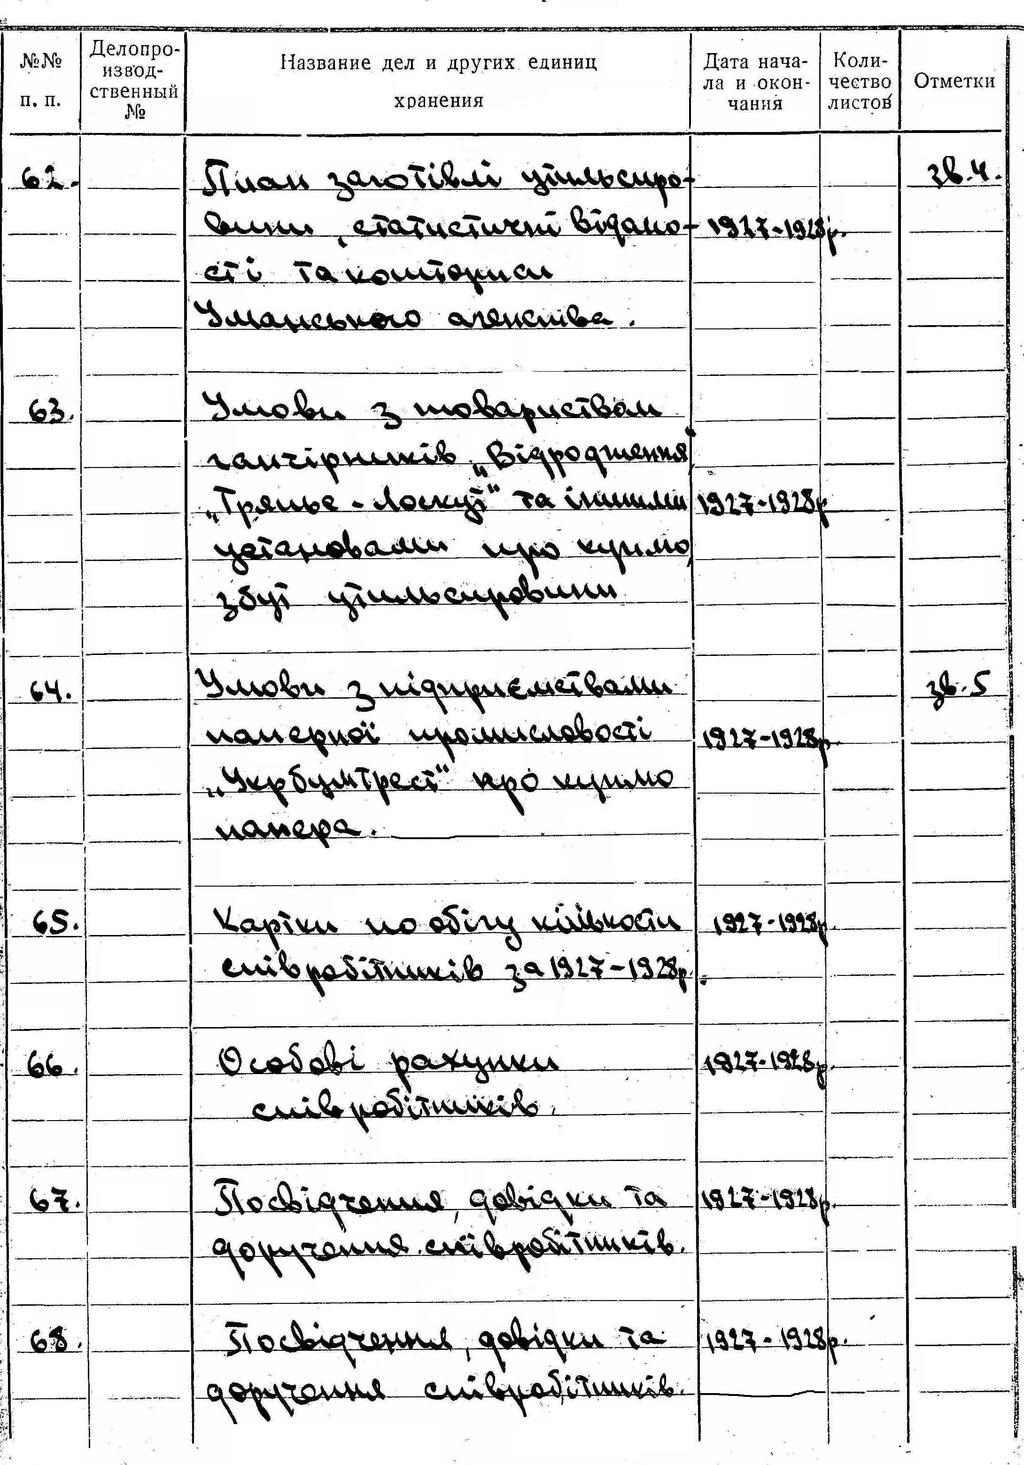 №№ п. п.
Делопро-
извод-
ственный
№
Название дел и других единиц
хранения
Дата нача-
ла и окон-
чания
Коли-
чество
листов
Отметки
62. План заготівлі утильсиро- зв. 4.
вини, статистичні відамо- 1927-1928р.
сті та кошториси
Уманського агенства.
63. Умови з товариством
ганчірників „Відродження"
„Тряпье - Лоскут" та іншими 1927-1928р
установами про куплю,
збут утильсировини
64. Умови з підприємствами зв. 5
паперної промисловості 1927-1928р.
„Укрбумтрест" про куплю
папера.
65. Картки по обігу кількости 1927-1928р.
співробітників за 1927-1928р.
66. Особові рахунки 1927-1928р.
співробітників.
67. Посвідчення, довідки та 1927-1928р.
доручення співробітників.
68. Посвідчення, довідки та 1927-1928р.
доручення співробітників.